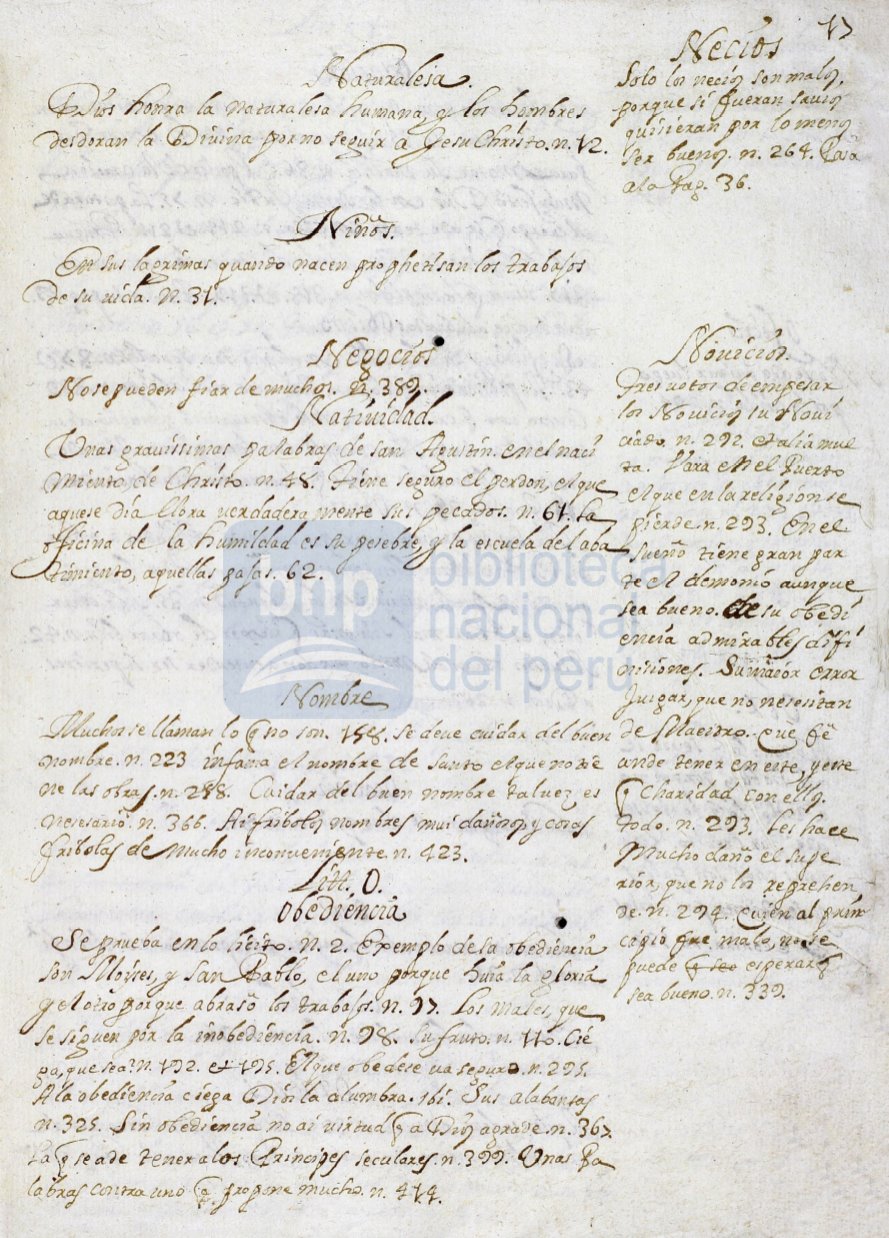 17
Naturalesa.
Dios honra la naturalesa humana, y los hombres
desdoran la Divina por no seguir a Jesu Christo. n. 12.
Niños.
En sus lagrimas quando nacen prophetisan los trabajos
de su vida. n. 31.
Negocios
No se pueden fiar de muchos. n. 389.
Natividad.
Unas gravissimas palabras de san Agustin en el naci
miento de Christo. n. 48. tiene seguro el perdon, el que
aquese dia llora verdadera mente sus pecados. n. 61. la
oficina de la humildad es su pesebre, y la escuela del aba
timiento, aquellas pajas. 62.
Nombre
Muchos se llaman lo q no son. 158. se deve cuidar del buen
nombre. n. 223 infama el nombre de santo el que no tie
ne las obras. n. 288. Cuidar del buen nombre tal vez es
nesesario. n. 366. Ai fribolos nombres mui dañosos y cosas
fribolas de mucho inconveniente. n. 423.
Litt. O.
obediencia
Se prueba en lo licito. n. 2. Exemplo de la obediencia
son Moyses, y san Pablo, el uno porque huia la gloria
y el otro porque abraso los trabajos. n. 97. Los males, que
se siguen por la inobediencia. n. 98. su fruto. n. 110. Cie
ga, que sea? n. 192. et 195. El que obedese va seguro. n. 295.
A la obediencia ciega Dios la alumbra. ibi. Sus alabansas
n. 325. Sin obediencia no ai virtud q a Dios agrade. n. 367.
La q se a de tener a los Principes seculares. n. 399. Unas Pa
labras contra uno q propone mucho. n. 414.
Necios
Solo los necios son malos,
porque si fueran savios
quisieran por lo menos
ser buenos. n. 264. Pasa
a la Pag. 36.
Novicios.
Tres votos de empesar
los Novicios su Novi
ciado. n. 292. et alia mul
ta. Vara en el Puerto
el que en la religion se
pierde. n. 293. En el
sueño tiene gran par
te el demonio aunque
sea bueno. de su obedi
encia admirables difi
nisiones. Su maior error
Juzgar, que no nesesitan
de Maestro. que fe
an de tener en este, y este
q Charidad con ellos.
todo. n. 293. Les hace
Mucho daño el supe
rior, que no los reprehen
de. n. 294. Quien al prin
cipio fue malo, no se
puede esperar q
sea bueno. n. 339.
bnp
biblioteca
nacional
del perú